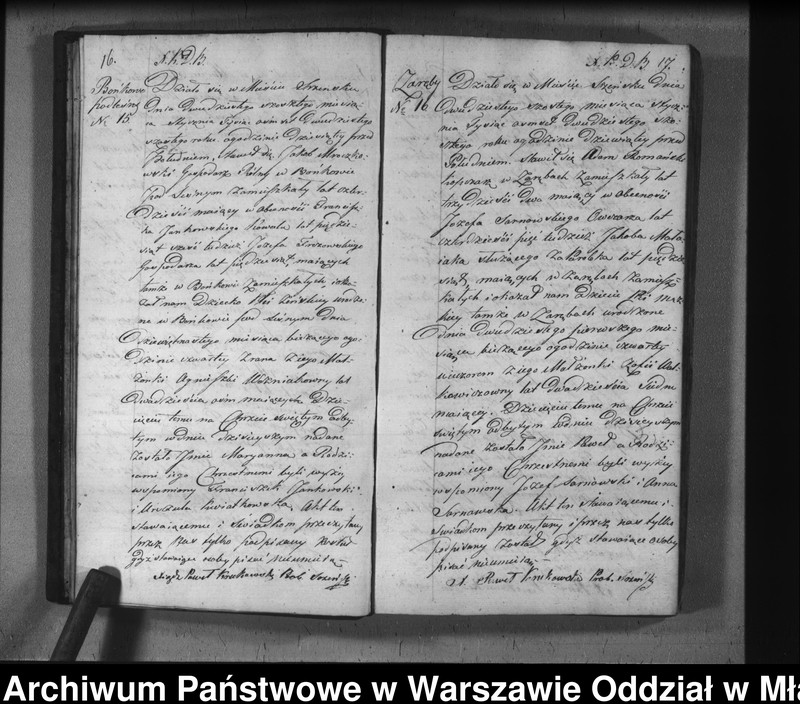 16.
Bońkowo
Kościelne
№ 15
Działo się w Mieście Szreńsku
dnia dwudziestego szóstego miesią-
ca Stycznia Tysiąc ośmset dwudziestego
szóstego roku o godzinie dziewiątey przed
Południem, Stawił się Jakob
Gospodarz Rolny w Bońkowie
pod zamieszkały lat czter-
dzieści maiący w obecności Francisz-
ka Jankowskiego Kowala lat pięćdzie-
siąt sześć tudzież Jozefa
Gospodarza lat pięćdziesiąt, maiących
tamże w Bońkowie zamieszkałych i oka-
zał nam Dziecko Płci żeńskiey urodzo-
ne w Bońkowie pod dnia
dziewiętnastego miesiąca bieżącego o go-
dzinie czwartey z rana z iego Mał-
żonki Agnieszki Woźniakowny lat
dwadzieścia ośm maiących. Dzie-
cięciu temu na Chrzcie świętym odby-
tym w dniu dzisieyszym nadane
zostało Jmie Maryanna, a Rodzi-
cami iego Chrzestnemi byli wyżey
wspomniony Franciszek Jankowski
i Urszula Kwiatkowska, Akt ten
stawaiącemu i świadkom przeczytany
przez Nas tylko podpisany został
gdyż stawaiące osoby pisać nieumieią
Xiądz Paweł Krukowski Prob. Szreńsk
17.
Zaręby
№ 16.
Działo się w Mieście Szreńsku dnia
dwudziestego szóstego miesiąca Stycz-
nia Tysiąc ośmset dwudziestego szó-
stego roku o godzinie dziewiątey przed
Południem. Stawił się Adam Romański
w Zarębach zamieszkały lat
trzydzieści dwa maiący w obecności
Jozefa Sarnowskiego Owczarza lat
czterdzieści pięć tudzież Jakóba Mata-
iaka służącego za Parobka lat pięćdzie-
siąt, maiących w Zarębach zamiesz-
kałych i okazał nam Dziecie Płci męz-
kiey tamże w Zarębach urodzone
dnia dwudziestego pierwszego mie-
siąca bieżącego o godzinie czwartey
wieczorem z iego Małżonki Zofii
lat dwadzieścia siedm
maiącey. Dziecięciu temu na Chrzcie
świętym odbytym w dniu dzisieyszym
nadane zostało Jmie Paweł, a Rodzi-
cami iego Chrzestnemi byli wyżey
wspomniony Jozef Sarnowski i Anna
Sarnowska. Akt ten stawaiącemu i
świadkom przeczytany i przez nas tylko
podpisany został gdyż stawaiące osoby
pisać nieumieią.
X. Paweł Krukowski Prob. Szreńsk
Archiwum Państwowe w Warszawie Oddział w Mła